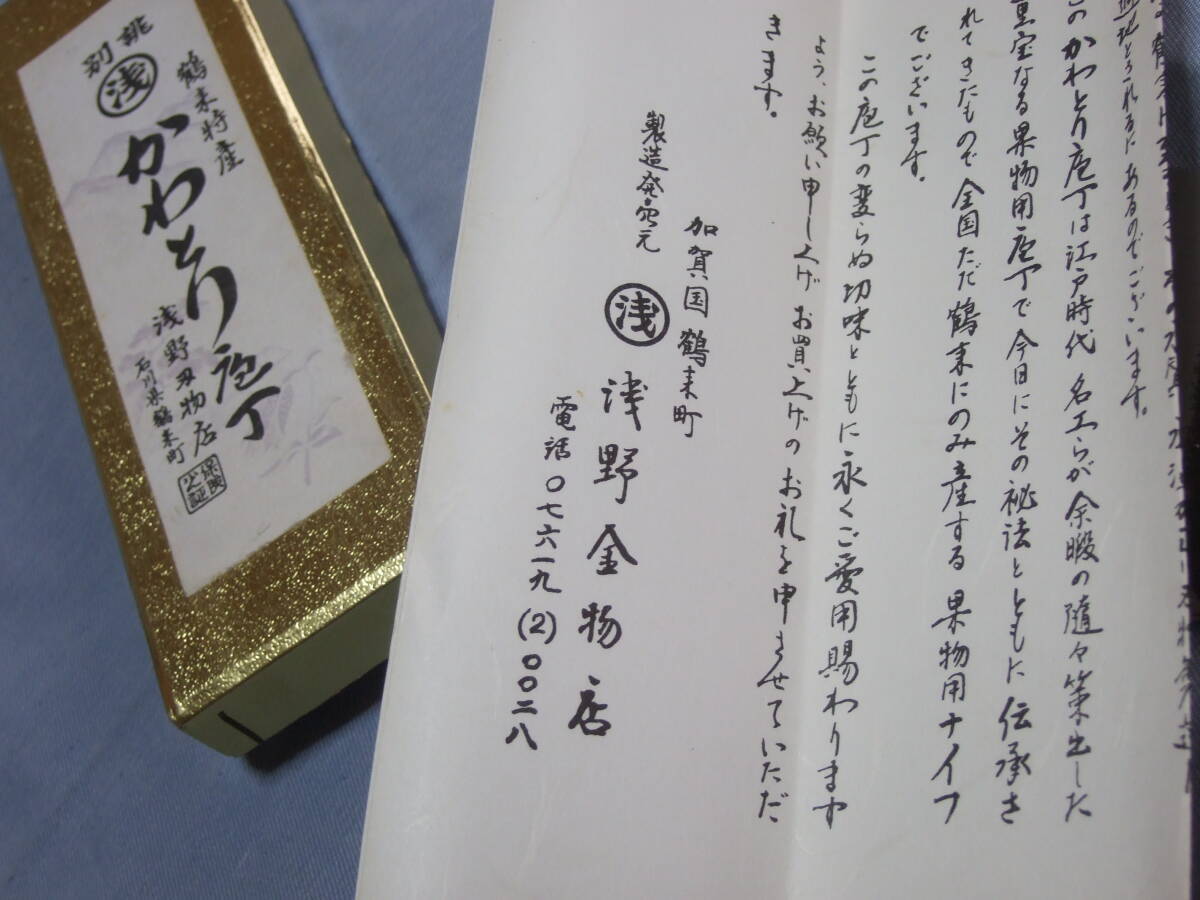 別誂
浅
鶴来特産
かわとり庖丁
浅野刃物店
石川県鶴来町
あるのでございます。
このかわとり庖丁は江戸時代 名工らが余暇の随々策出した
重宝なる果物用庖丁で今日にその秘法とともに伝承さ
れてきたもので全国ただ鶴来にのみ産する果物用ナイフ
でございます。
この庖丁の変らぬ切味ともに永くご愛用賜わります
よう、お願い申し上げ お買上げのお礼を申させていただ
きます。
加賀国鶴来町
製造発売元
浅 浅野金物店
電話〇七六一九(2)〇〇二八